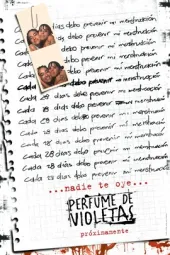 días debo prevenir mi menstruación.
debo prevenir mi menstruación.
debo prevenir mi menstruación
debo prevenir mi menstruación
Cada 28 días debo prevenir mi menstruación
Cada 28 días debo prevenir mi menstruación
Cada 28 días debo prevenir mi menstruación
Cada 28 días debo prevenir mi menstruación
Cada 28 días debo prevenir mi menstruación
Cada 28 días debo prevenir mi menstruación
Cada 28 días debo prevenir mi menstruación
...nadie te oye...
PERFUME DE
VIOLETAS
próximamente